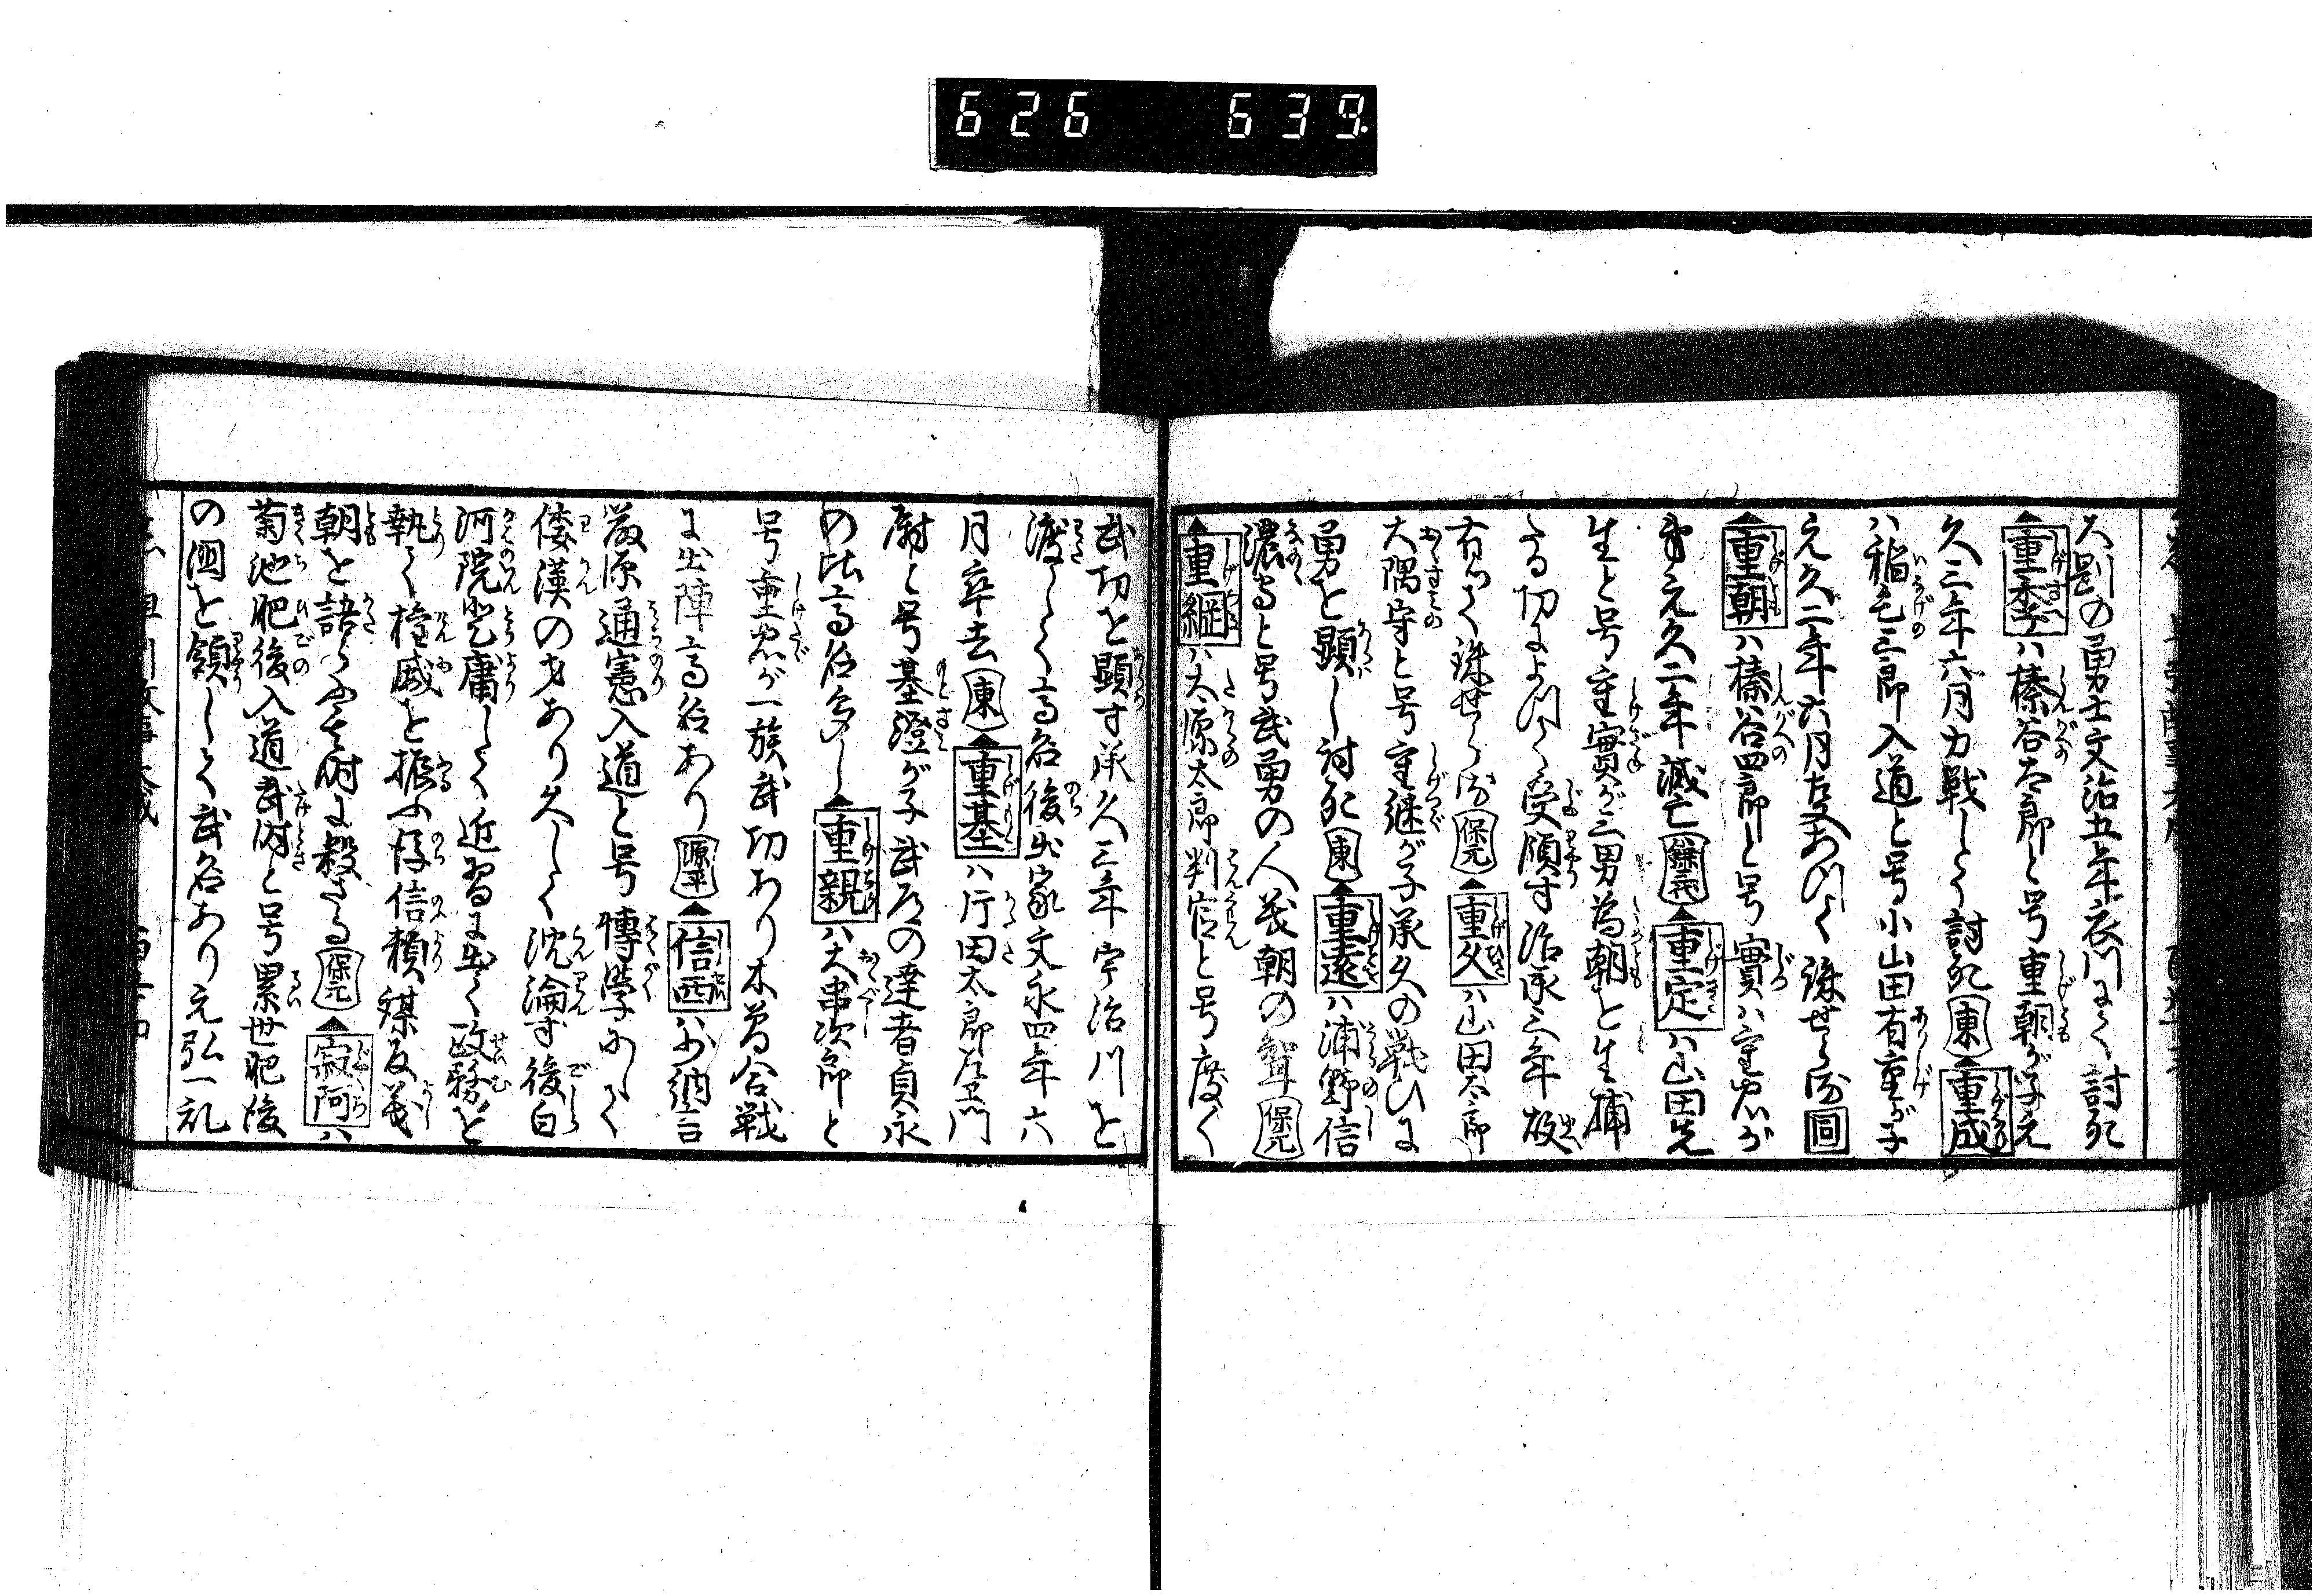 626 639
大剛の勇士文治五年衣川にて討死
▲重季ハ榛谷太郎と号重朝が子元
久二年六月力戦して討死(東)▲重成
ハ稲毛三郎入道と号小山田有重が子
元久二年六月故あつて誅せらる同
▲重朝ハ榛谷四郎と号實ハ重忠が
弟元久二年滅亡▲重定ハ山田先
生と号重實が三男為朝を生捕
たる切によつて受領す治承三年故
有つて誅せらる(保元)▲重久ハ山田太郎
大隅守と号重継が子承久の戦ひに
勇を顕し討死(東)▲重遠ハ浦野信
濃守と号武勇の人義朝の聟(保元)
▲重綱ハ大源太郎判官と号度〱
武切を顕す承久三年宇治川を
渡して高名後出家文永四年六
月卒去(東)▲重基ハ行田太郎左衛門
尉と号基澄が子武芸の達者貞永
の比高名多し▲重親ハ大串次郎と
号重忠が一族武切あり木曽合戦
に出陣高名あり(源平)▲信西ハ少納言
藤原通憲入道と号博学にして
倭漢の才あり久しく沈淪す後白
河院登庸して近習に出て政務を
執て権威を振ふ後信頼謀反義
朝を語らふ時に殺さる(保元)▲寂阿ハ
菊池肥後入道武時と号累世肥後
の国を領して武名あり元弘一乱